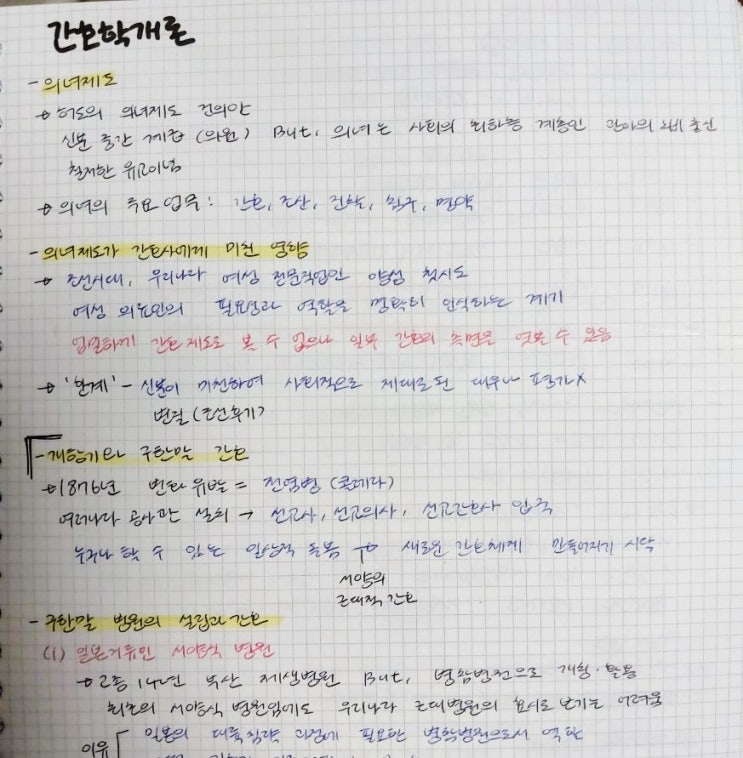 간호학개론
- 의녀제도
→ 허도의 의녀제도 건의안
신분 중간 계급 (의원) But, 의녀는 사회의 최하층 계층인 관아의 노비 출신
철저한 유교이념
→ 의녀의 주요 업무: 간호, 조산, 진찰, 침구, 명약
- 의녀제도가 간호사에게 미친 영향
→ 조선시대, 우리나라 여성 전문직업인 양성 첫시도
여성 의료인의 필요성과 역할을 명확히 인식하는 계기
엄밀하게 간호제도로 볼 수 없으나 일부 간호의 측면을 엿볼 수 있음
→ '한계' - 신분이 미천하여 사회적으로 제대로된 대우나 평가X
변질 (조선후기)
- 개항기와 구한말 간호
→ 1876년 변화 유발 = 전염병 (콜레라)
여러나라 공사관 설치 → 선교사, 선교의사, 선교간호사 입국
누구나 할 수 있는 일상적 돌봄 → 새로운 간호체계 만들어지기 시작
서양의
근대적 간호
- 구한말 병원의 설립과 간호
(1) 일본거류민 서양식 병원
→ 고종 14년 부산 제생병원 But, 병참병원으로 개칭·활용
최초의 서양식 병원임에도 우리나라 근대병원의 효시로 보기는 어려움
이유 [ 일본의 대륙침략 과정에 필요한 병참병원으로서 역할